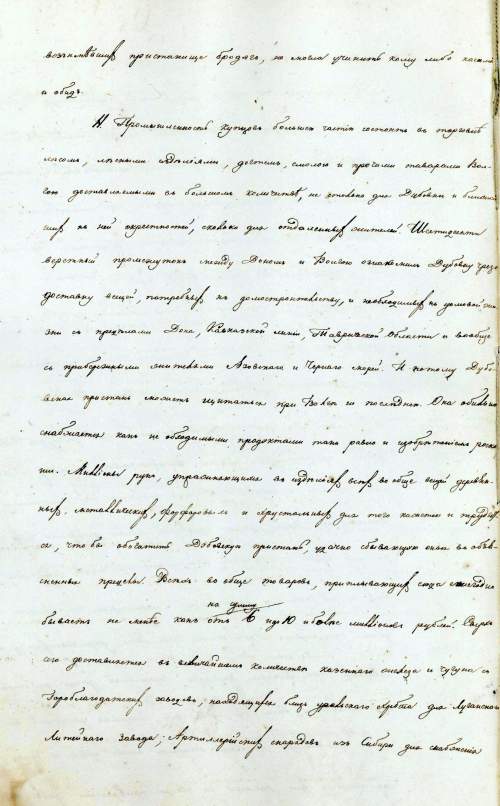 возъимѣвшихъ пристанище бродягъ, не могла учинить кому либо
и обидъ.
Промышленность купцовъ большею частію состоитъ въ торговлѣ
лѣсомъ, лѣсными издѣліями, дегтемъ, смолою и прочими товарами Вол-
гою доставляемыми въ большомъ количествѣ, не столько для Дубовки и
къ ней окрестностей, сколько для отдаленныхъ жителей. Шестидесяти
верстный промежутокъ между Дономъ и Волгою ознакомилъ Дубовку чрезъ
доставку вещей, потребныхъ къ домостроительству, и необходимыхъ къ домовой жи-
зни съ предѣлами Дона, Кавказской линіи, Таврической Области и вообще
съ прибережными жителями Азовскаго и Чернаго морей. И потому Дубо-
вская пристань можетъ считаться при Волгѣ не послѣднею. Она обильно
снабжается какъ необходимыми продуктами такъ равно и изобрѣтеніемъ роско-
ши. Милліоны рукъ, упражняющихся въ издѣліи всѣхъ вообще вещей деревян-
ныхъ, металлическихъ, фарфоровыхъ и хрустальныхъ для того кажется и трудят-
ся, чтобы обогатить Дубовскую пристань, удачно сбывающую оныя въ объя-
сненные предѣлы. Всѣхъ вообще товаровъ, приплывающихъ сюда ежегодно
на сумму
бываетъ не менѣе какъ отъ 6 и до 10 и болѣе милліоновъ рублей. Сверхъ
сего доставляется въ величайшемъ количествѣ казеннаго желѣза и чугуна съ
Гороблагодатскихъ заводовъ, находящихся близъ уральскаго хребта для Луганскаго
Литейнаго завода; Артиллерійскихъ снарядовъ изъ Сибири для снабженія